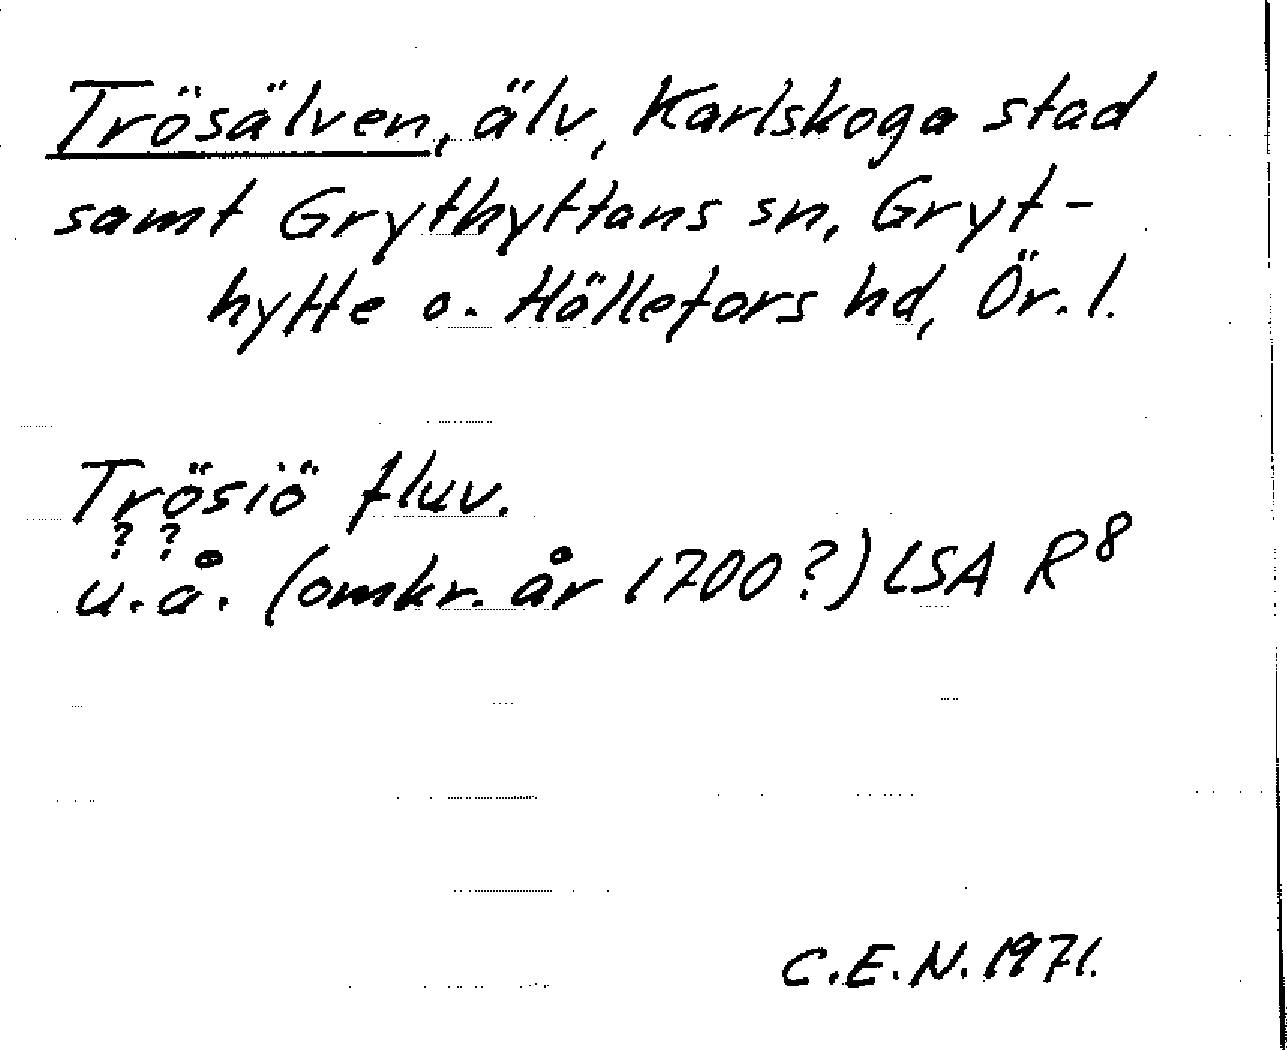 Trösälven, älv, Karlskoga stad
samt Grythyttans sn, Gryt-
hytte o. Hällefors hd, Ör. l.
Trösiö fluv.
? ?
u.å. (omkr. år 1700?) LSA R8
C.E.N. 1971.